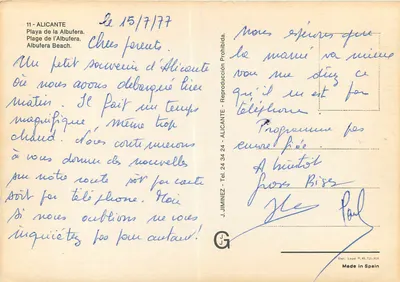 11 - ALICANTE
Playa de la Albufera.
Plage de l'Albufera.
Albufera Beach.
le 15/7/77
Chers parents.
Un petit souvenir d'Alicante
où nous avons débarqué hier
matin. Il fait un temps
magnifique, même trop
chaud. Nous continuerons
à vous donner des nouvelles
sur notre route soit par carte
soit par téléphone. Mais
si nous oublions ne vous
inquiétez pas pour autant!
J. JIMINEZ - Tel. 24 34 24 - ALICANTE - Reproducción Prohibida.
JG
nous espérons que
la mamie va mieux
qu'il m est par
téléphone.
Programme pas
encore fixé.
A bientôt
Gros Bises
Paul
Made in Spain